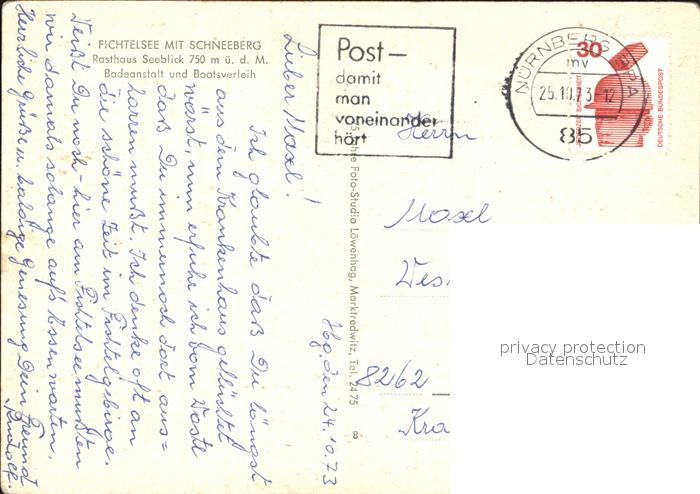 FICHTELSEE MIT SCHNEEBERG
Rasthaus Seeblick 750 m ü. d. M.
Badeanstalt und Bootsverleih
Post—
damit
man
voneinander
hört
NÜRNBERG BPA
mv
25.10.73-12
85
30
DEUTSCHE BUNDESPOST
Hbg. den 24.10.73
Lieber Maxl!
Ich glaubte daß Du längst
aus dem Krankenhaus geflüchtet
wärst, nun erfuhr ich vom Voste
daß Du immernoch dort aus=
harren mußt. Ich denke oft an
die schöne Zeit im Fichtelgebirge.
Weißt Du noch - hier am Fichtelsee mußten
wir damals solange auf's Essen warten.
Herzliche Grüße u. baldige Genesung Dein Freund
Rudolf.
Foto-Studio Löwenhag, Marktredwitz, Tel. 2475
8
Herrn
Maxl
Wes
8262
Kra
privacy protection
Datenschutz